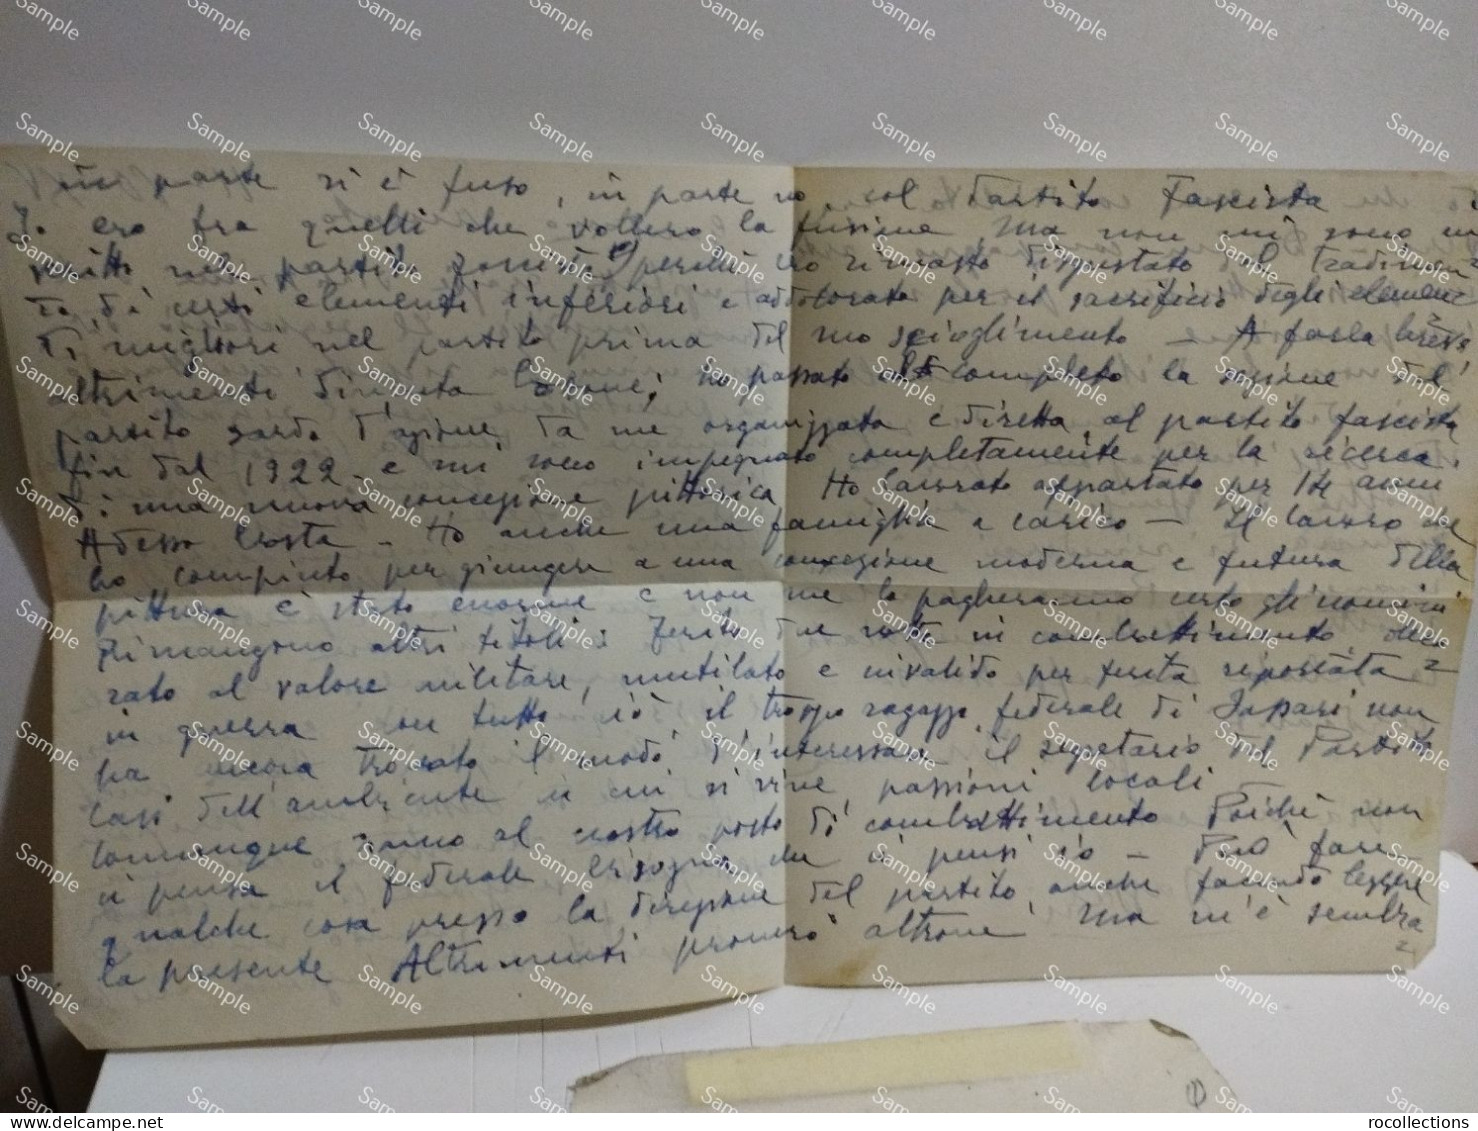 in parte si è fuso, in parte no, col Partito Fascista
Io ero fra quelli che vollero la fusione Ma non mi sono in
scritto nel partito perchè ero rimasto disgustato del tradimen
to di certi elementi inferiori e addolorato per il sacrificio degli elemen
ti migliori nel partito prima del suo scioglimento — A farla breve
altrimenti diventa ho passato al completo la sezione del
partito sardo d'azione, da me organizzata e diretta al partito fascista
fin dal 1922 e mi sono impegnato completamente per la ricerca
di una nuova concezione pittorica Ho lavorato appartato per 14 anni
Adesso basta — Ho anche una famiglia a carico — Il lavoro che
ho compiuto per giungere a una concezione moderna e futura della
pittura è stato enorme e non me lo pagheranno certo gli uomini
Rimangono altri titoli: Ferito due volte in combattimento deco
rato al valore militare, mutilato e invalido per ferita riportata
in guerra con tutto ciò il troppo ragazzo federale di Sassari non
ha ancora trovato il modo d'interessare il segretario del Partito
Casi dell'ambiente in cui si vive passioni locali —
Comunque siamo al nostro posto di combattimento Poichè non
ci pensa il federale bisogna che ci pensi io — Può fare
qualche cosa presso la direzione del partito, anche facendo leggere
la presente Altrimenti proverò altrove Ma mi è sembra
Sample
rocollections
www.delcampe.net